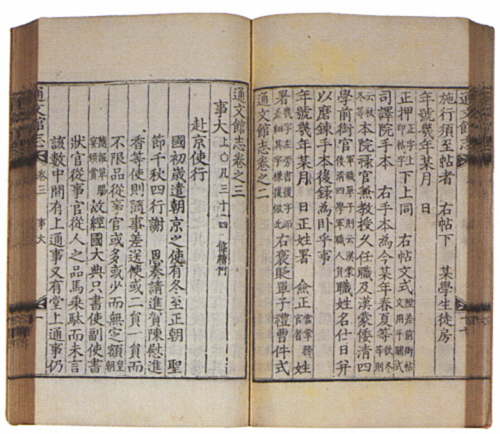 通文館志
施行須至帖者 右帖下 某學生徒房
年號幾年某月 日
正押 下上同 右帖文式
司譯院手本 右手本爲今某年春夏等
本院祿官無敎授久任職及漢蒙倭清四
學前銜官 職姓名仕日幷
以磨鍊手本後錄爲卧乎事
年號幾年某月 日正姓署 僉正 姓
署 右褒貶單子禮曹件式
通文館志卷之二
通文館志卷之三
事大 上○凡三十四條續附
赴京使行
國初歲遣朝京之使有冬至正朝 聖
節千秋四行謝 恩奏請進賀陳慰進
香等使則隨事差送使或二員一員而
不限品從事官或多或少而無定額
故經國大典只書使副使書
狀官從事官從人之品馬乘馱而未言
該數中間有上通事又有堂上通事仍
通文館志 卷三 事大 一